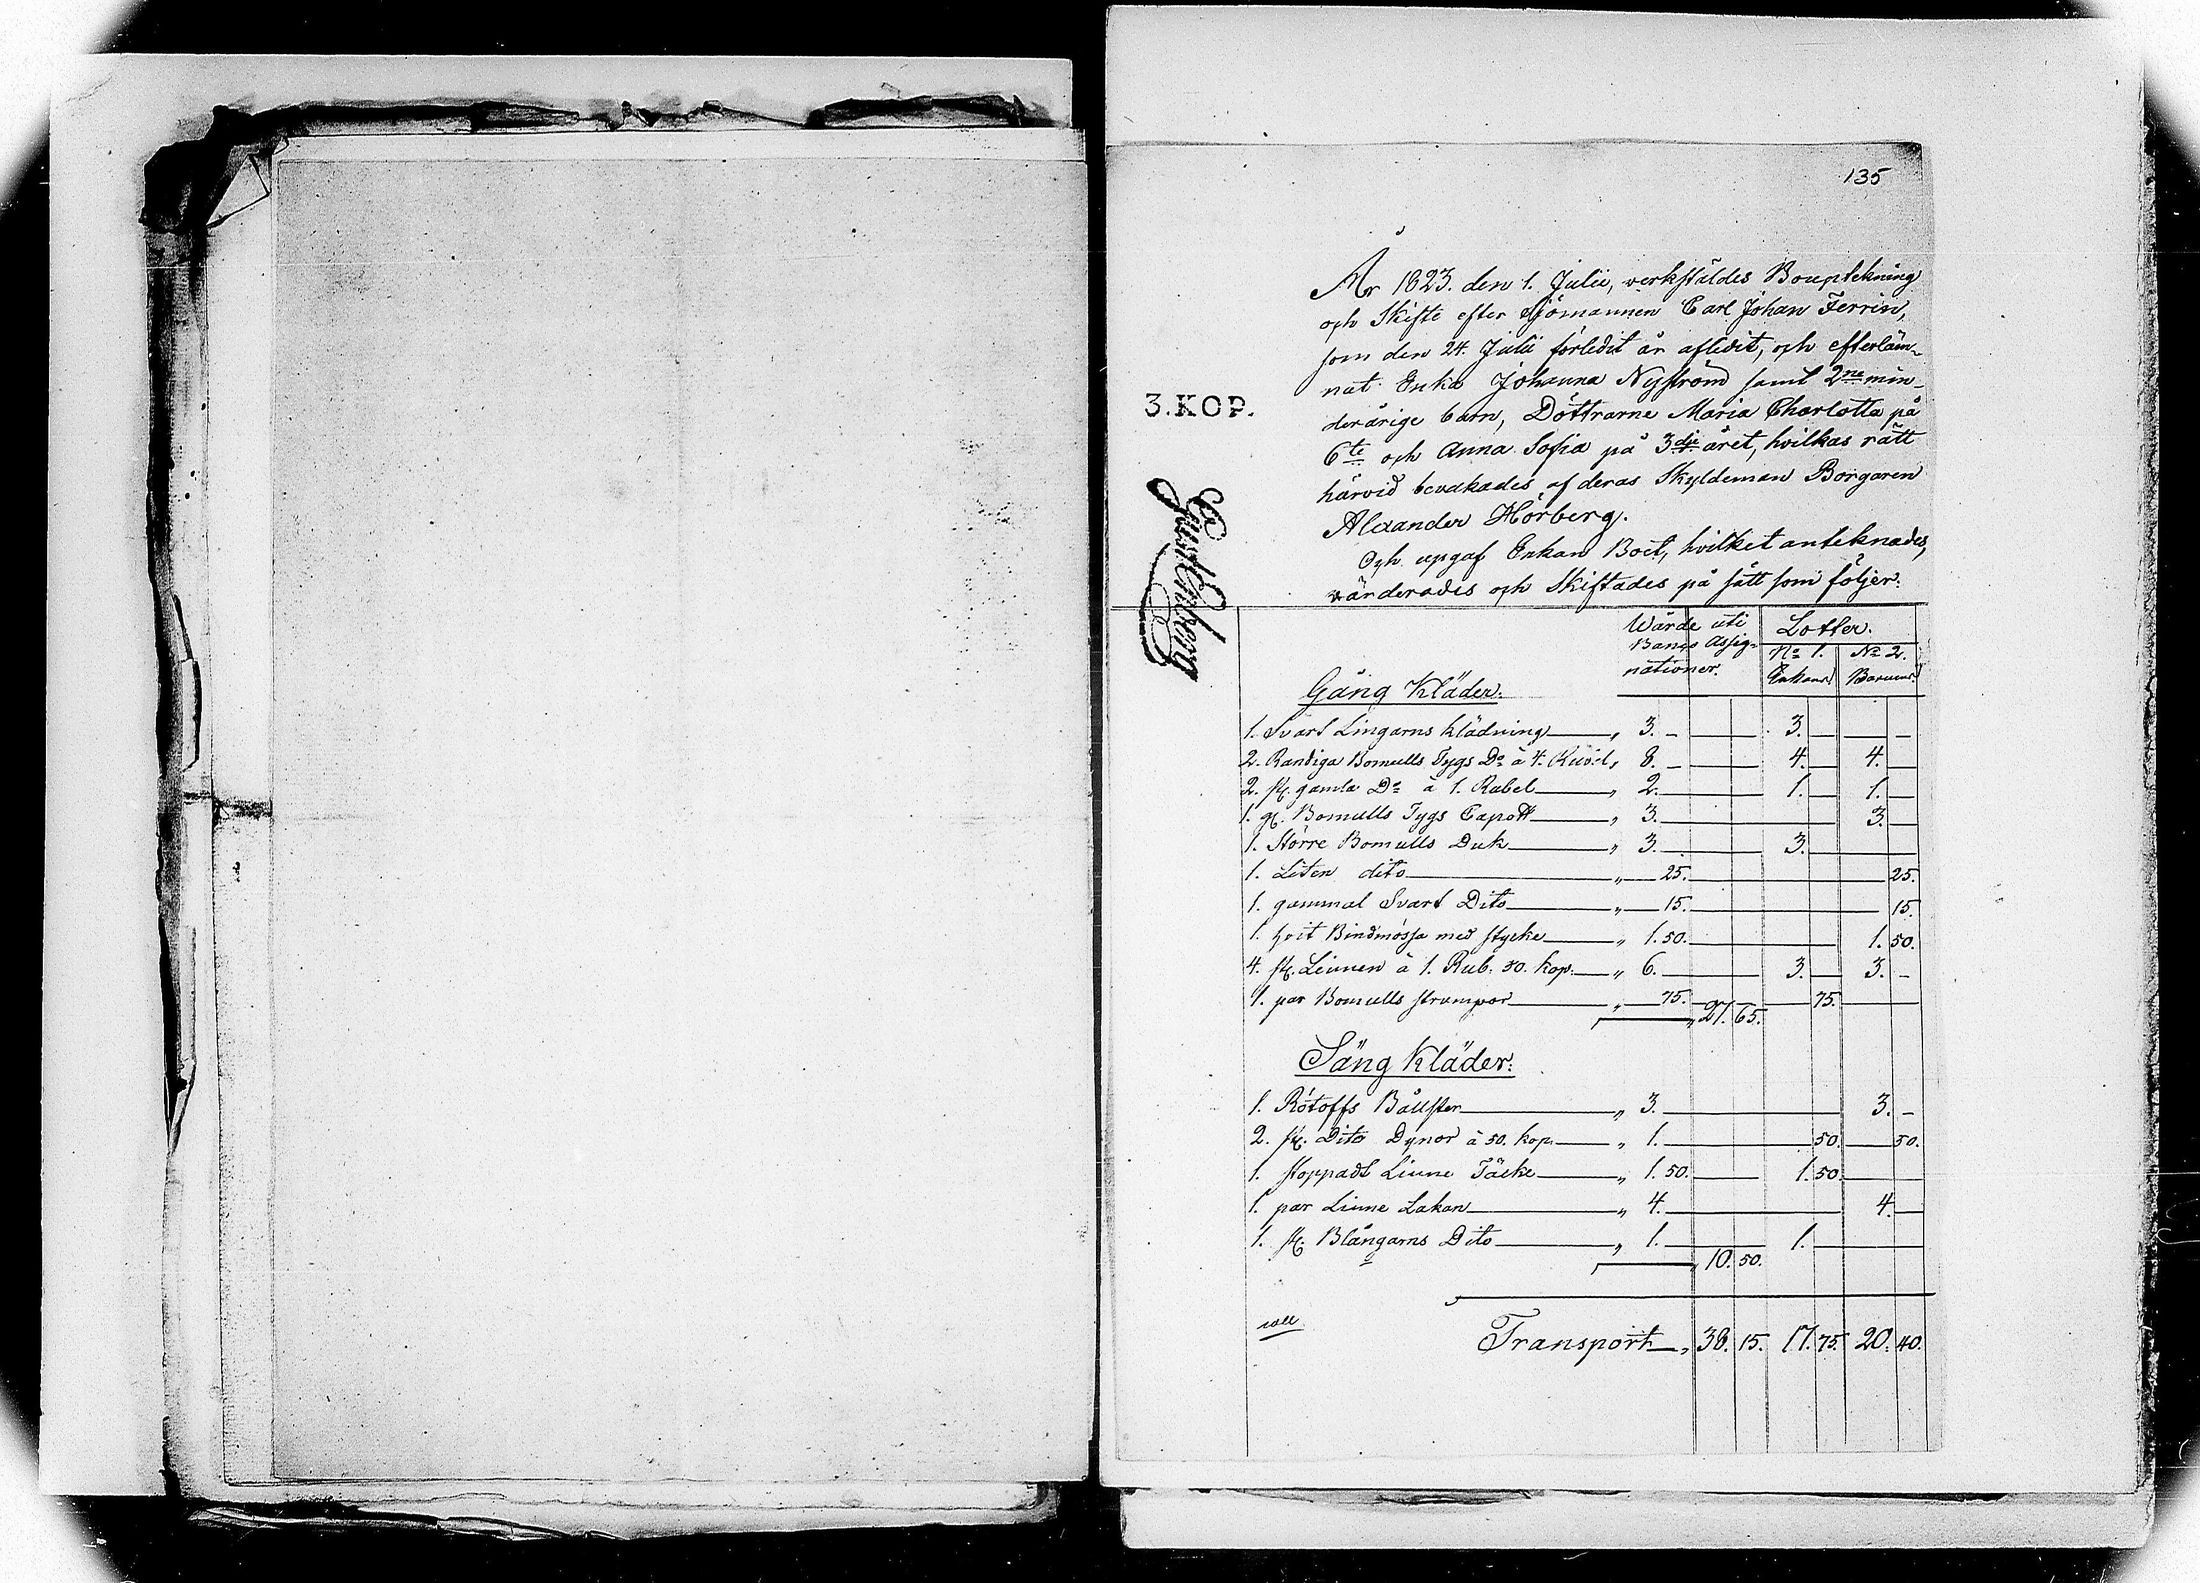 135
År 1823. den 1. Julii, verkstäldes Bouptekning
och Skifte efter Sjömannen Carl Johan Ferrin,
som den 24. Julii förledit år afledit, och efterläm-
nat Enka Johanna Nyström samt 2ne min-
derårige barn, Döttrarne Maria Charlotta på
6te och Anna Sofia på 3dje året, hvilkas rätt
härvid bevakades af deras Skyldeman Borgaren
Alexander Hörberg.
Och upgaf Enkan Boet, hvilket anteknades,
värderades och Skiftades på sätt som följer:
3.KOP.
Wärde uti Banco Assig-nationer. Lotter.
No 1. Enkans No 2. Barnens
Gång Kläder:
1. Svart Lingarns klädning „ 3. — 3. —
2. Randiga Bomulls Tygs Do à 4. Rub:l „ 8. — 4. 4.
2. st. gamla Do à 1. Rubel „ 2. 1. 1.
1. gl. Bomulls Tygs Capott „ 3. 3.
1. Större Bomulls Duk „ 3. 3.
1. Liten dito „ 25. 25.
1. gammal Svart Dito „ 15. 15.
1. hvit Bindmössa med stycke „ 1. 50. 1. 50.
4. st. Linnen à 1. Rub. 50. kop. „ 6. 3. 3. —
1. par Bomulls strumpor „ 75. 75.
„ 27. 65.
Säng Kläder:
1. Rötoffs Bållster „ 3. 3. —
2. st. Dito Dynor à 50. kop. „ 1. 50. 50.
1. stoppadt Linne Täcke „ 1. 50. 1. 50.
1. par Linne Lakan „ 4. 4.
1. st. Blångarns Dito „ 1. 1.
„ 10. 50.
Transport „ 38. 15. 17. 75. 20. 40.